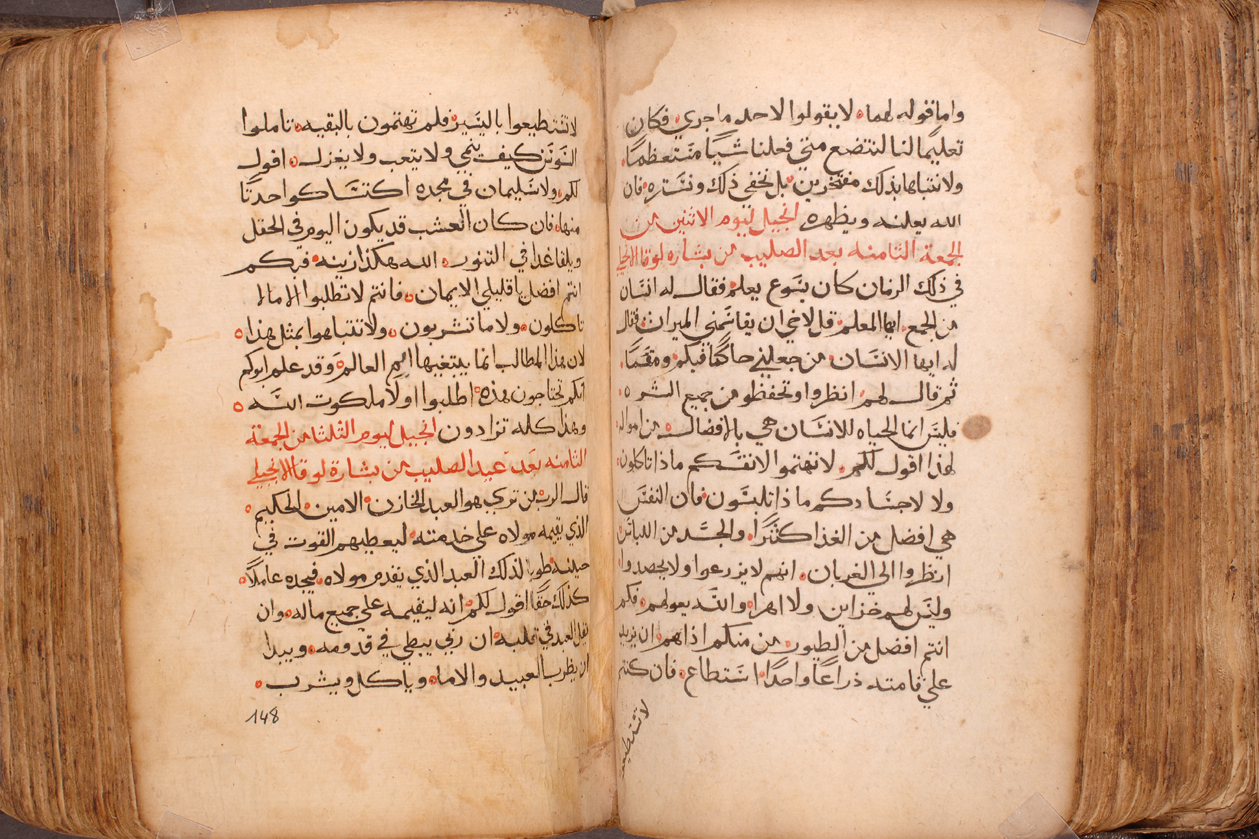 واما قوله لهما لا يقولوا لاحد ما جري فكان
تعليمًا لنا لنتضع متي فعلنا شيًا مستعظمًا
ولا نتباها بذلك مفتخرين بل نخفي ذلك ونستره فان
الله يعلنه ويظهره انجيل ليوم الاثنين من
الجمعة الثامنه بعد الصليب من بشاره لوقا الانجيلي
في ذلك الزمان كان يسوع يعلم فقال له انسان
من الجمع ايها المعلم قل لاخي ان يقاسمني الميراث فقال
له ايها الانسان من جعلني حاكمًا فيكم ومقسمًا
ثم قال لهم انظروا وتحفظو من جميع الشره
فليس انما الحياه للانسان هي بالافضال من امواله
لهذا اقول لكم لا تهتموا لانفسكم ماذا تاكلون
ولا لاجسادكم ماذا تلبسون فان النفس
هي افضل من الغذا كثيرًا والجسد من اللباس
انظروا الي الغربان انهم لا يزرعوا ولا يحصدوا
وليس لهم خزاين ولا اهرا والله يعولهم فكم
انتم افضل من الطيور من منكم اذا هم ان يزيد
علي قامته ذراعًا واحدًا استطاع فان كنتم
لا تستطيعوا
لا تستطيعوا باليسير فلم تهتمون بالبقيه تاملوا
السوسن كيف ينمي ولا يتعب ولا يغزل اقول
لكم ولا سليمان في مجده اكتسا كواحدتًا
منها فان كان العشب قد يكون اليوم في الحقل
ويلقا غدا في التنور الله هكذا زينه فبكم
انتم افضل يا قليلي الايمان فانتم لا تطلبوا
تاكلون ولا ما تشربون ولا تتباهوا بمثل هذا
لان هذا المطالب انما يبتغيها امم العالم وقد علم ابوكم
انكم تحتاجون هذه اطلبوا اولًا ملكوت الله
وهذا كله تزادون انجيل ليوم الثلثا من الجمعة
الثامنه بعد عيد الصليب من بشارة لوقا الانجيلي
قال الرب من تري هو العبد الخازن الامين الحكيم
الذي يقيمه مولاه علي خدمته ليعطيهم القوت في
حينه طوبا لذلك العبد الذي يقدم مولاه فيجده عاملًا
كذلك حقًا اقول لكم انه ليقيمه علي جميع ماله وان
يقل العبد في قلبه ان ربي يبطي في قدومه ويبدا
ان يظرب العبيد والاما وياكل ويشرب
148